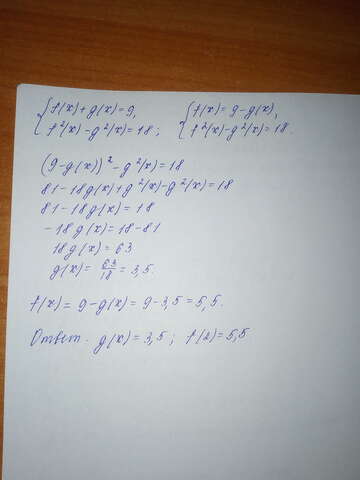 {f(x)+g(x)=9, {f(x)=9-g(x),
f²(x)-g²(x)=18; f²(x)-g²(x)=18.
(9-g(x))²-g²(x)=18
81-18g(x)+g²(x)-g²(x)=18
81-18g(x)=18
-18g(x)=18-81
18g(x)=63
g(x)=63/18=3,5.
f(x)=9-g(x)=9-3,5=5,5.
Ответ. g(x)=3,5; f(x)=5,5